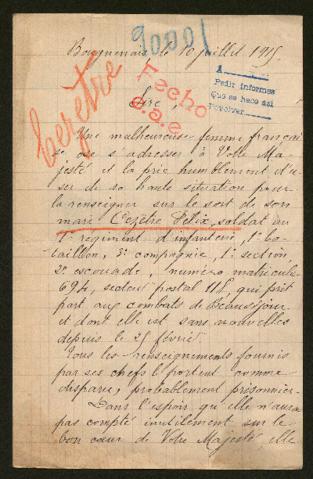 90001
Bouguenais le 10 juillet 1915.
Sire,
Fecho
A
Pedir informes
Que se hace así
Devolver
Une malheureuse femme française
ose s'adresser à Votre Ma-
jesté et la prie humblement d'u-
ser de sa haute situation pour
la renseigner sur le sort de son
mari Félix, soldat au
1er régiment d'infanterie, 1er ba-
taillon, 3e compagnie, 1e section,
2e escouade, numéro matricule
694, secteur postal 118, qui prit
part aux combats de Beauséjour
et dont elle est sans nouvelles
depuis le 25 février.
Tous les renseignements fournis
par ses chefs le portent comme
disparu, probablement prisonnier.
Dans l'espoir qu'elle n'aura
pas compté inutilement sur le
bon cœur de Votre Majesté elle